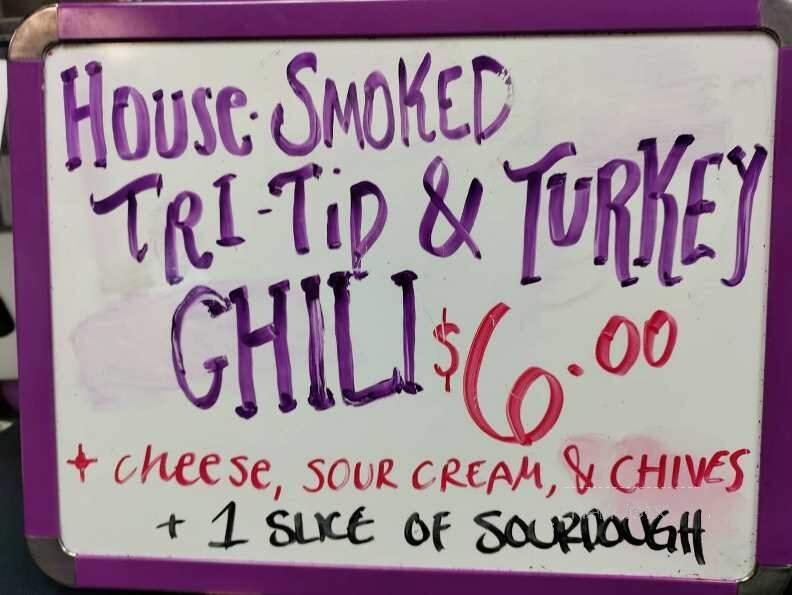 HOUSE-SMOKED
TRI-TiP & TURKEY
CHILI $6.00
+ cheese, SOUR CREAM, & CHIVES
+ 1 SLICE OF SOURDOUGH